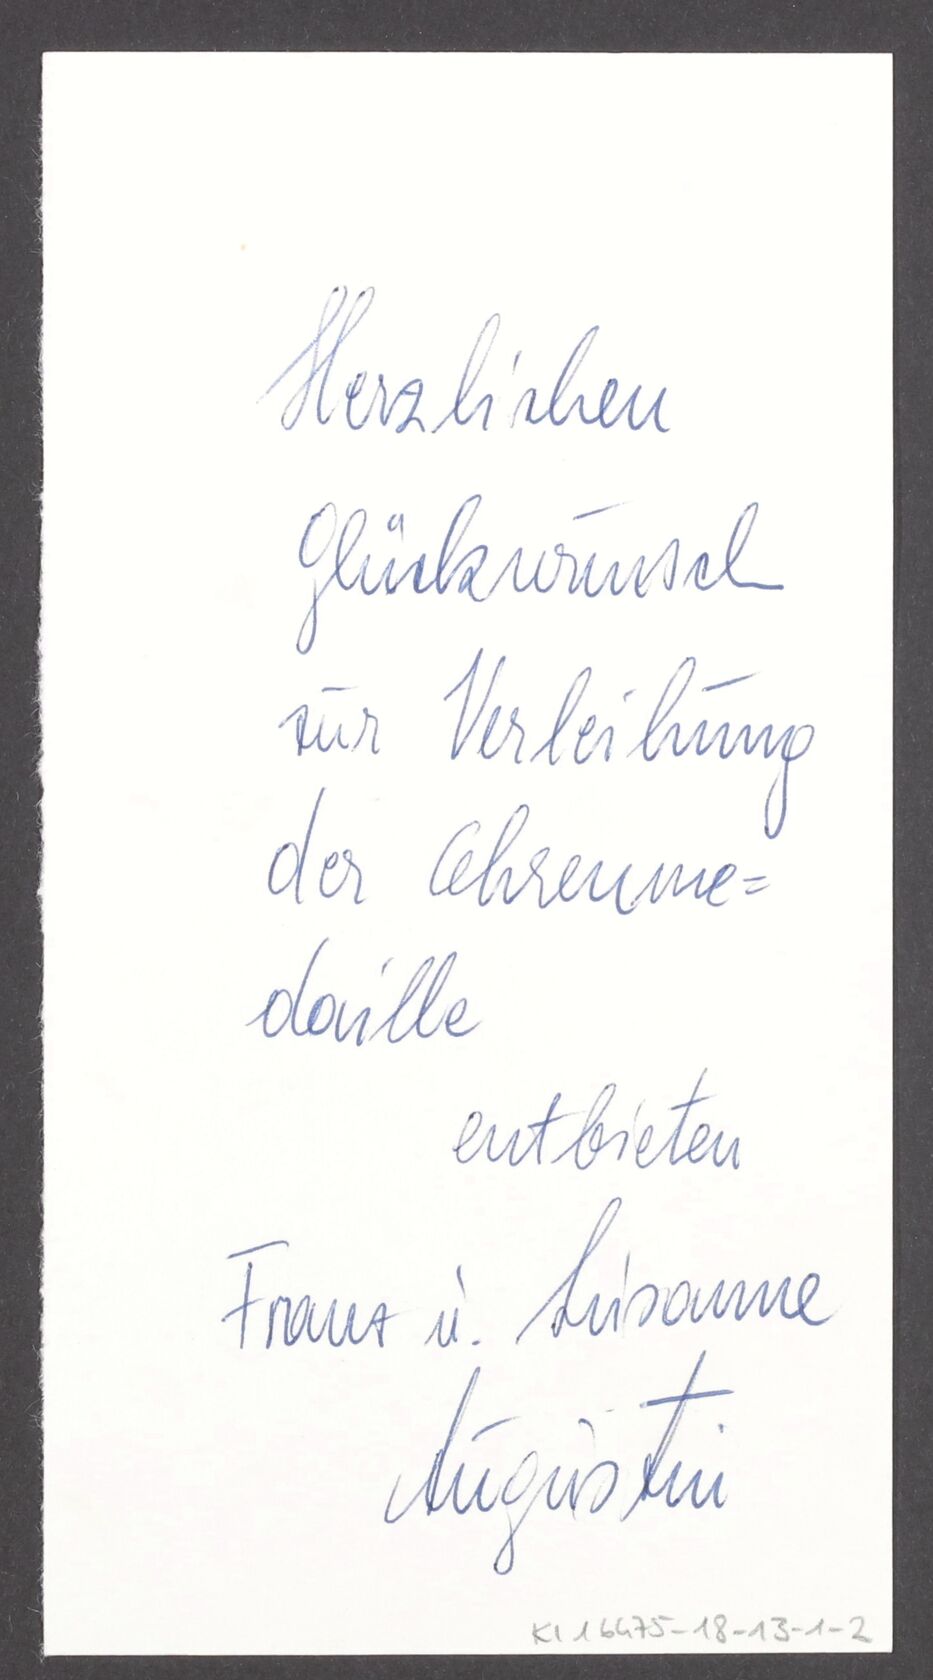 Herzlichen
Glückwunsch
zur Verleihung
der Ehrenme=
daille
entbieten
Franz u. Susanne
Augustin
KI 16475-18-13-1-2